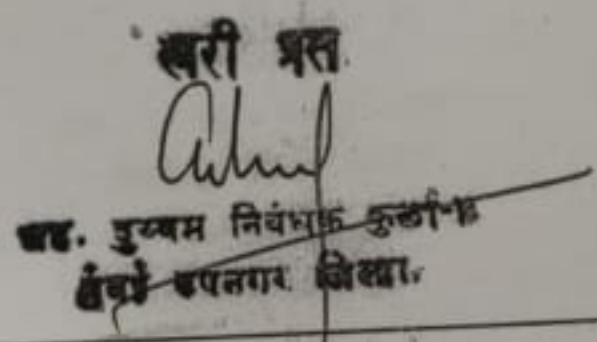 खरी प्रत
सह. दुय्यम निबंधक कुर्ला-
मुंबई उपनगर जिल्हा.